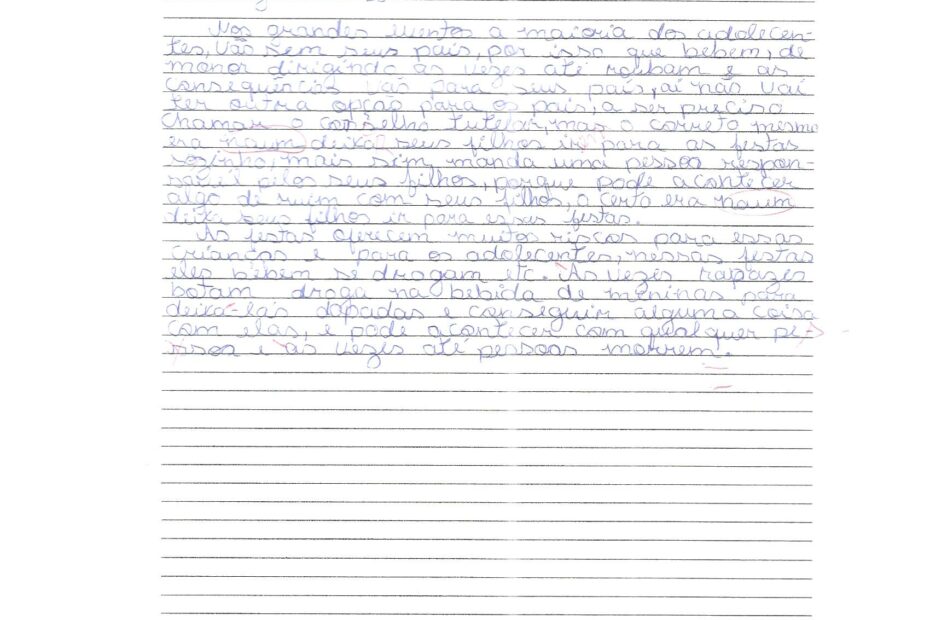 Nos grandes eventos a maioria dos adolecen-
tes, vão sem seus pais, por isso que bebem, de
menor dirigindo as vezes até roubam e as
consequências vão para seus pais, ai não vai
ter outra opção para os pais, a ser preciso
chamar o conselho tutelar, mas o correto mesmo
era naum deixa seus filhos ir para as festas
sozinho, mais sim manda uma pessoa respon-
savel pelos seus filhos, porque pode acontecer
algo de ruim com seus filhos, o certo era naum
deixa seus filhos ir para essas festas.
As festas oferecem muitos riscos para essas
crianças e para os adolecentes, nessas festas
eles bebem se drogam etc. As vezes rapazes
botam droga na bebida de meninas para
deixa-las dopadas e conseguir alguma coisa
com elas, e pode acontecer com qualquer pe-
ssoa e as vezes até pessoas morrem.